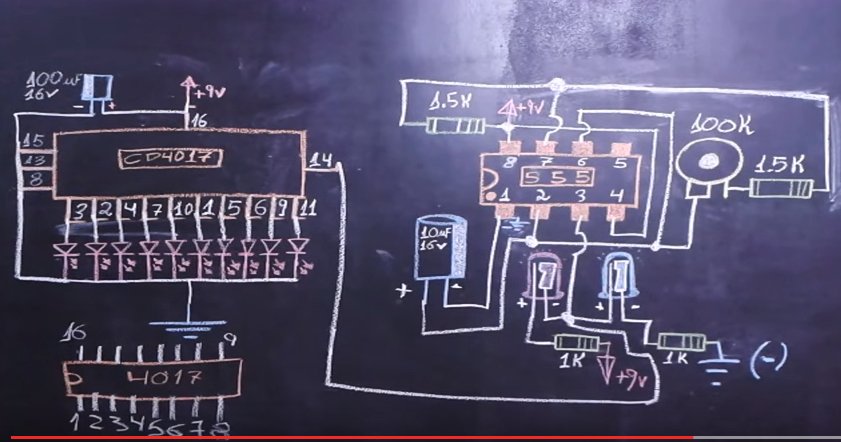 100uF
16v
- +
+9v
16
15
13
8
CD4017
14
3 2 4 7 10 1 5 6 9 11
16 9
4017
1 2 3 4 5 6 7 8
1.5K
+9v
100K
1.5K
8 7 6 5
555
1 2 3 4
10uF
16v
+ -
+ -
+ -
1K
+9v
1K
(-)